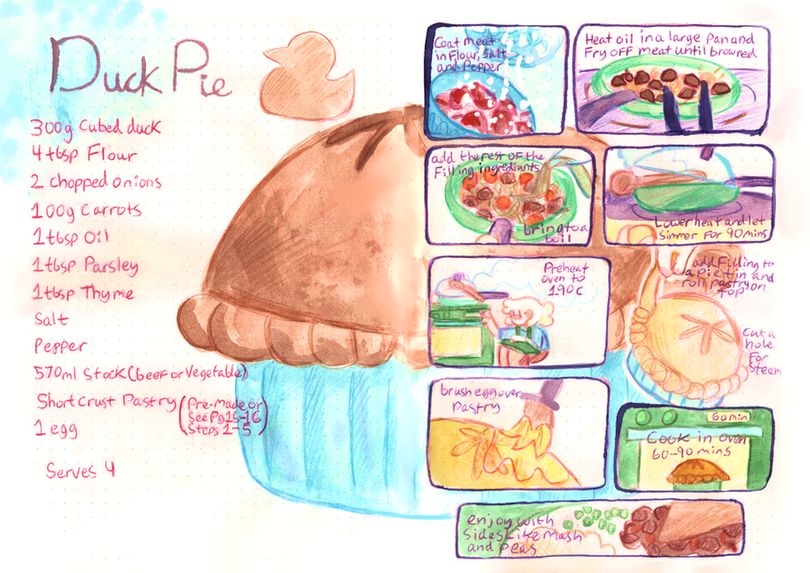 Duck Pie
300g Cubed duck
4tbsp Flour
2 chopped onions
100g Carrots
1tbsp Oil
1tbsp Parsley
1tbsp Thyme
Salt
Pepper
570ml Stock (beef or Vegetable)
Shortcrust Pastry (Pre-made or
see Pg 15-16
Steps 1-5)
1 egg
Serves 4
Coat meat
in Flour, Salt
and Pepper
Heat oil in a large Pan and
Fry OFF meat until browned
add the rest OF the
Filling ingrediants
bring to a
boil
Lower heat and let
Simmer For 90mins
Preheat
oven to
190c
add Filling to
a pie tin and
roll pastry on
top
Cut a
hole
For
Steam
brush egg over
Pastry
60min
Cook in oven
60-90 mins
enjoy with
sides like mash
and peas